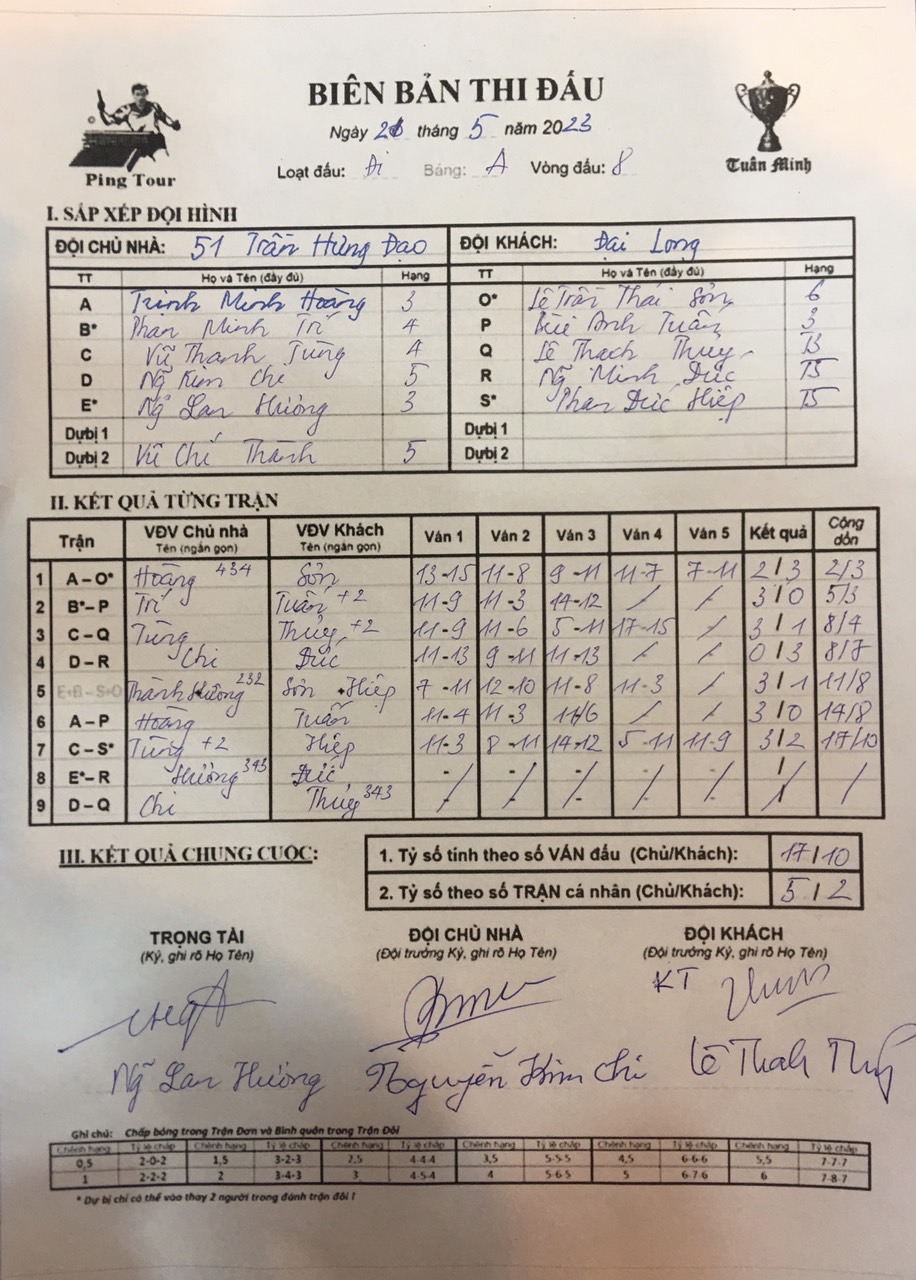 BIÊN BẢN THI ĐẤU
Ping Tour
Tuấn Minh
Ngày 26 tháng 5 năm 2023
Loạt đấu: Đi Bảng: A Vòng đấu: 8
I. SẮP XẾP ĐỘI HÌNH
ĐỘI CHỦ NHÀ: 51 Trần Hưng Đạo ĐỘI KHÁCH: Đại Long
TT Họ và Tên (đầy đủ) Hạng TT Họ và Tên (đầy đủ) Hạng
A Trịnh Minh Hoàng 3 O* Lê Trần Thái Sơn 6
B* Phan Minh Trí 4 P Bùi Anh Tuấn 3
C Vũ Thanh Tùng 4 Q Lê Thạch Thủy
D Ng̃ Kim Chi 5 R Ng̃ Minh Đức
E* Ng̃ Lan Hương 3 S* Phan Đức Hiệp
Dự bị 1 Dự bị 1
Dự bị 2 Vũ Chí Thành 5 Dự bị 2
II. KẾT QUẢ TỪNG TRẬN
Trận VĐV Chủ nhà Tên (ngắn gọn) VĐV Khách Tên (ngắn gọn) Ván 1 Ván 2 Ván 3 Ván 4 Ván 5 Kết quả Cộng dồn
1 A – O* Hoàng 434 Sơn 13-15 11-8 9-11 11-7 7-11 2/3 2/3
2 B* – P Trí Tuấn +2 11-9 11-3 14-12 / / 3/0 5/3
3 C – Q Tùng Thủy +2 11-9 11-6 5-11 17-15 / 3/1 8/4
4 D – R Chi Đức 11-13 9-11 11-13 / / 0/3 8/7
5 E+B – S+O Thành Hương 232 Sơn + Hiệp 7-11 12-10 11-8 11-3 / 3/1 11/8
6 A – P Hoàng Tuấn 11-4 11-3 11/6 / / 3/0 14/8
7 C – S* Tùng +2 Hiệp 11-3 8-11 14-12 5-11 11-9 3/2 17/10
8 E* – R Hương 343 Đức - - - - - /
9 D – Q Chi Thủy 343 - - - - - / /
III. KẾT QUẢ CHUNG CUỘC:
1. Tỷ số tính theo số VÁN đấu (Chủ/Khách): 17/10
2. Tỷ số theo số TRẬN cá nhân (Chủ/Khách): 5/2
TRỌNG TÀI ĐỘI CHỦ NHÀ ĐỘI KHÁCH
(Ký, ghi rõ Họ Tên) (Đội trưởng Ký, ghi rõ Họ Tên) (Đội trưởng Ký, ghi rõ Họ Tên)
KT
Ng̃ Lan Hương Nguyễn Kim Chi Lê Thạch
Ghi chú: Chấp bóng trong Trận Đơn và Bình quân trong Trận Đôi
Chênh hạng Tỷ lệ chấp Chênh hạng Tỷ lệ chấp Chênh hạng Tỷ lệ chấp Chênh hạng Tỷ lệ chấp Chênh hạng Tỷ lệ chấp Chênh hạng Tỷ lệ chấp
0,5 2-0-2 1,5 3-2-3 2,5 4-4-4 3,5 5-5-5 4,5 6-6-6 5,5 7-7-7
1 2-2-2 2 3-4-3 3 4-5-4 4 5-6-5 5 6-7-6 6 7-8-7
* Dự bị chỉ có thể vào thay 2 người trong đánh trận đôi !